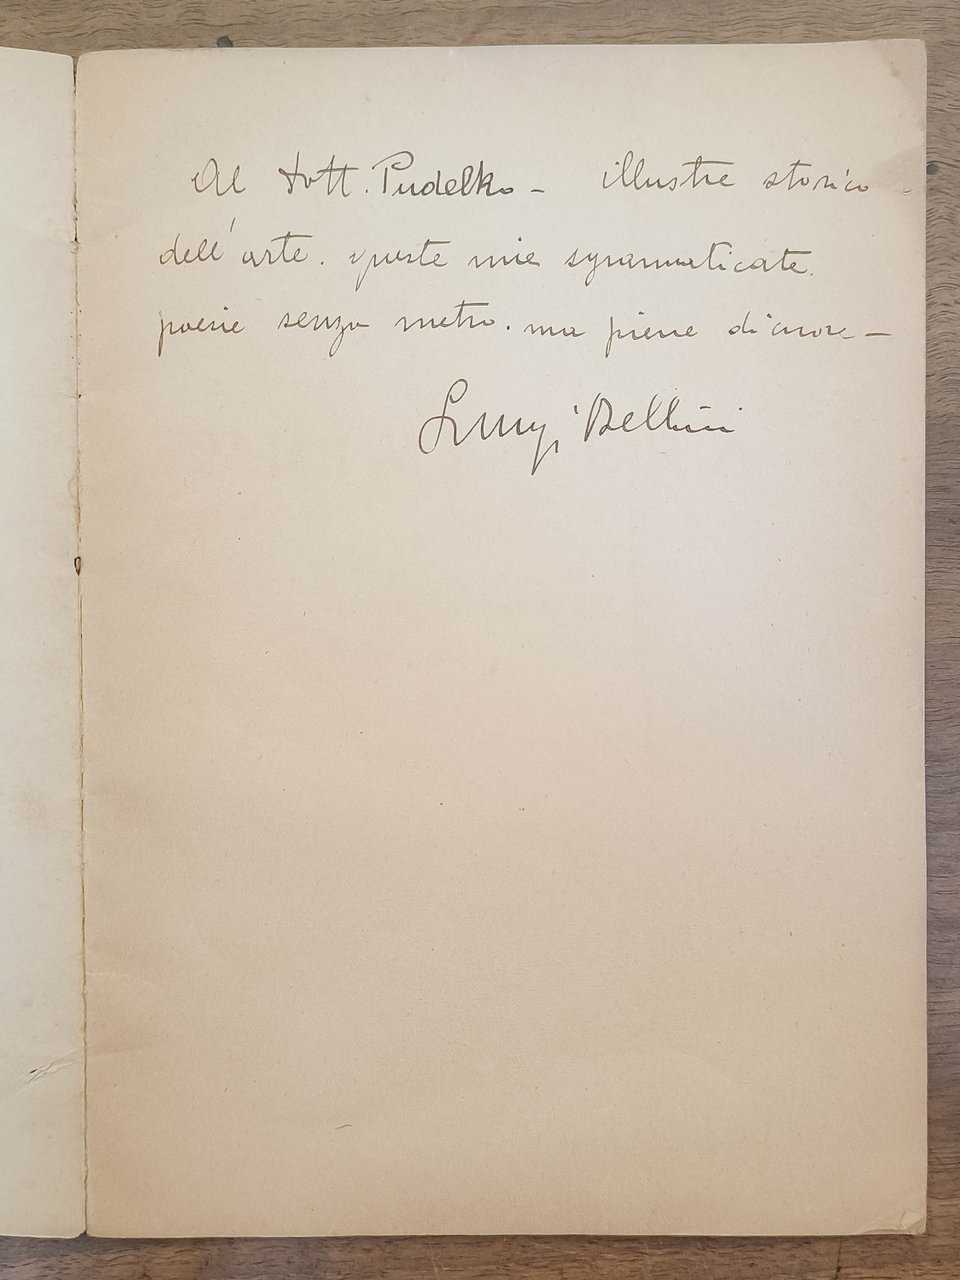 Al dott. Pudelko - illustre storico
dell'arte. queste mie sgrammaticate
poesie senza metro. ma piene di cuore -
Luigi Bellini